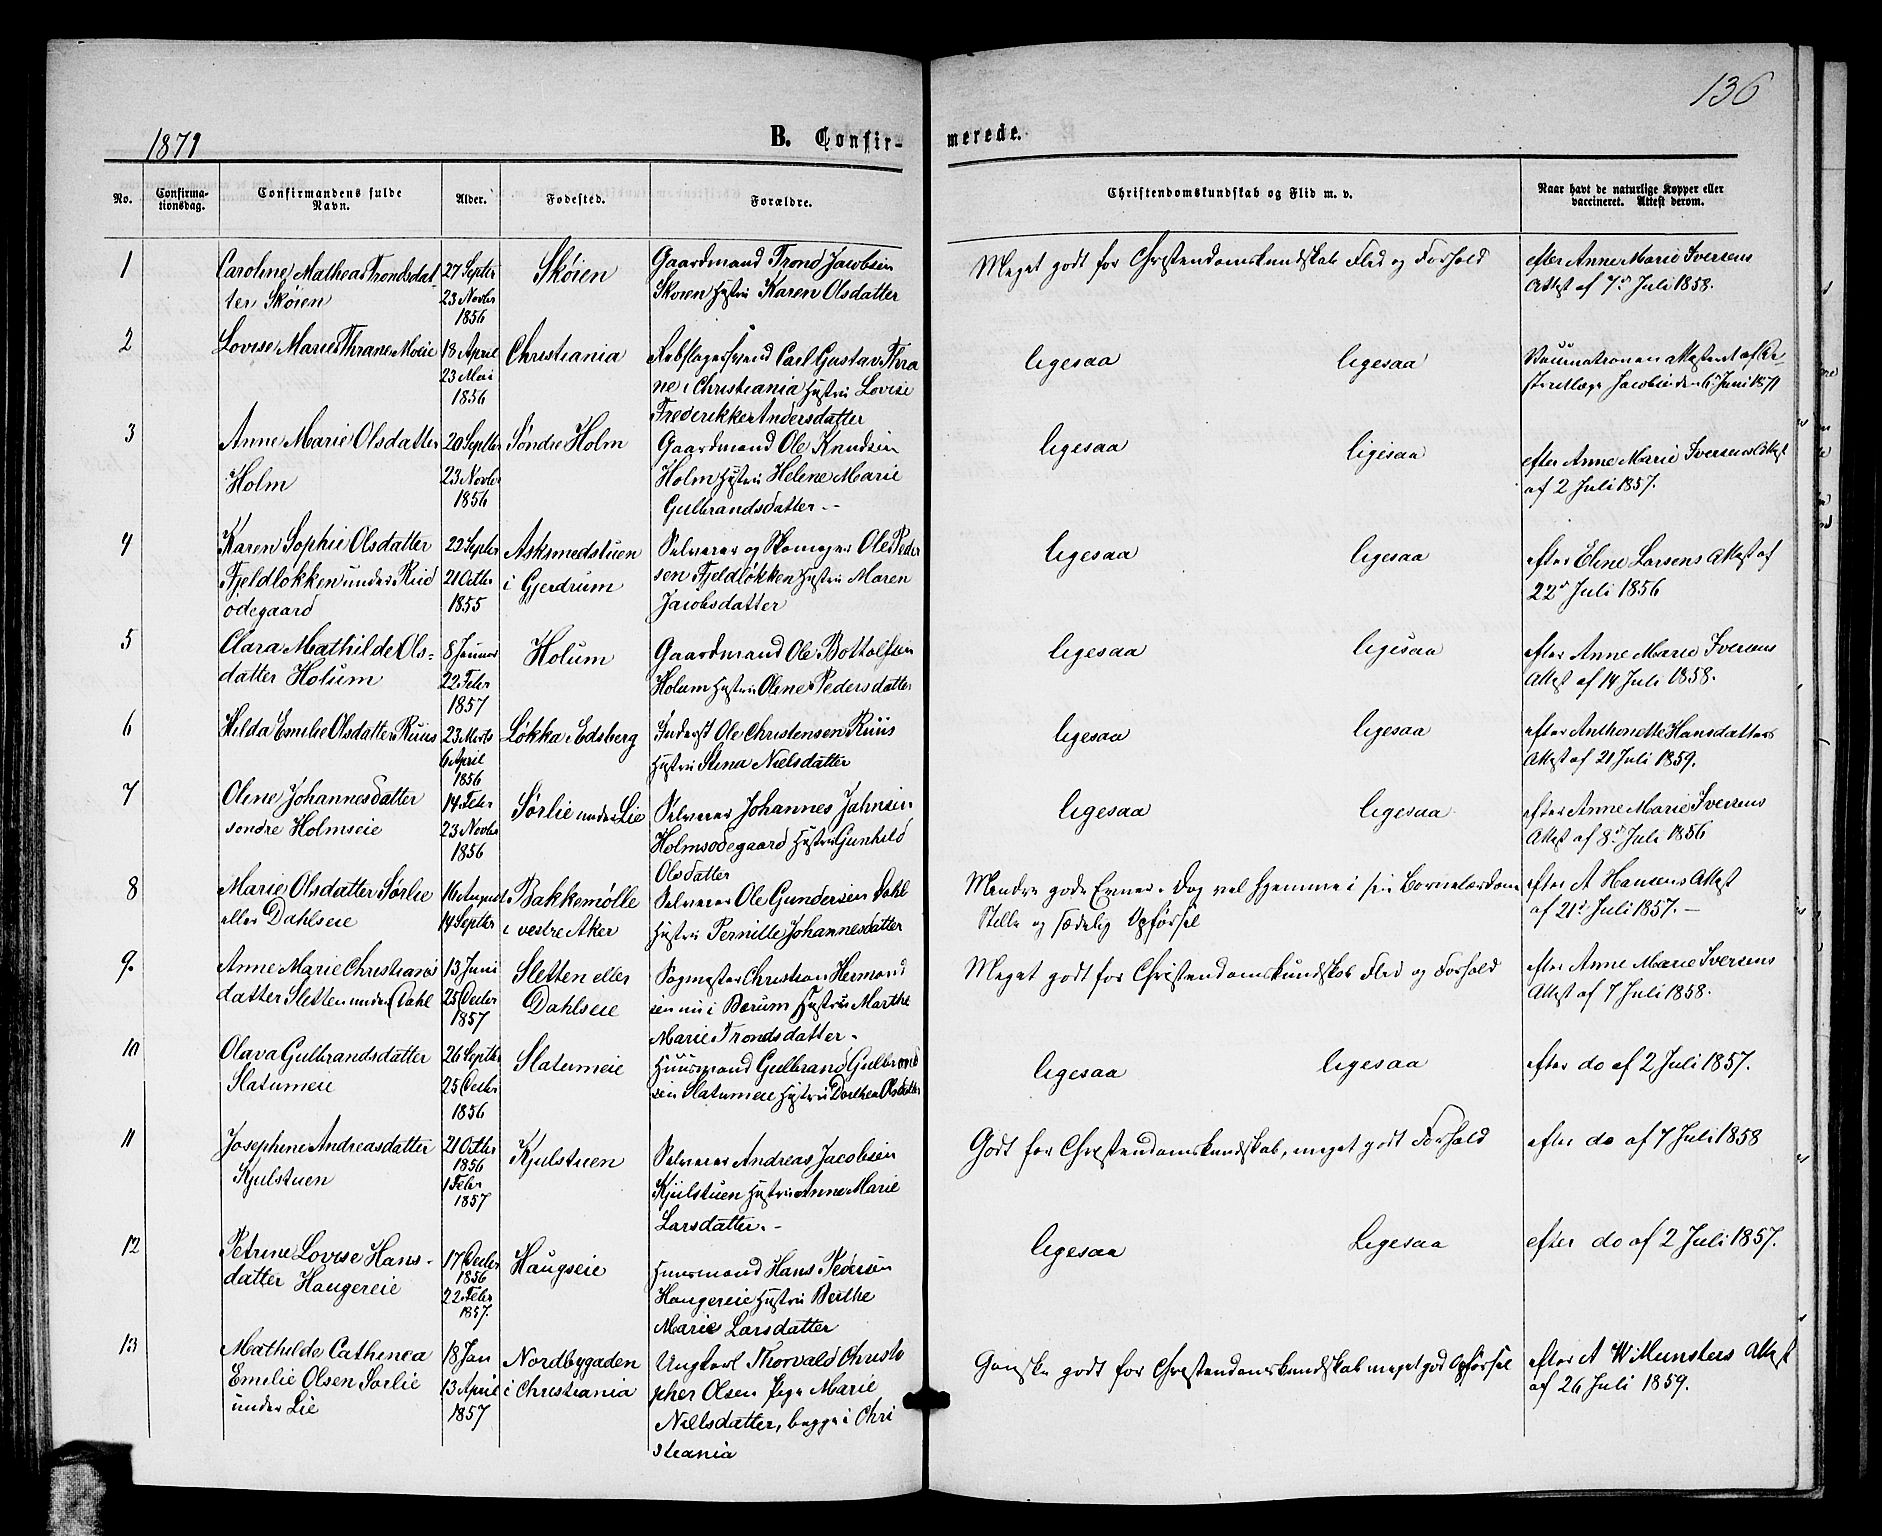 136
1871
B. Confir-
merede.
No.
Confirma-
tionsdag.
Confirmandens fulde
Navn.
Alder.
Fødested.
Forældre.
Christendomskundskab og Flid m. v.
Naar havt de naturlige Kopper eller
vaccineret. Attest derom.
1
Caroline Mathea Trondsdat-
ter Skøien
27 Septbr
23 Novbr
1856
Skøien
Gaardmand Trond Jacobsen
Skøien Hustru Karen Olsdatter
Meget godt for Christendomskundskab Flid og Forhold
efter Anne Marie Iversens
Attest af 7de Juli 1858.
2
Lovise Marie Thrane Moeie
18 April
23 Mai
1856
Christiania
Rebslagersvend Carl Gustav Thra
ne i Christiania Hustru Lovise
Frederikke Andersdatter
ligesaa ligesaa
Juni 1871
3
Anne Marie Olsdatter
Holm
20 Septbr
23 Novbr
1856
Søndre Holm
Gaardmand Ole Knudsen
Holm Hustru Helene Marie
Gulbrandsdatter.-
ligesaa ligesaa
efter Anne Marie Iversens Attest
af 2 Juli 1857.
4
Karen Sophie Olsdatter
Fjeldløkken under Ruud
ødegaard
22 Septbr
21 Octbr
1855
Asksmedstuen
i Gjerdrum
Selveier og Skomager Ole Peder
sen Fjeldløkken Hustru Maren
Jacobsdatter
ligesaa ligesaa
efter Eline Larsens Attest af
22de Juli 1856
5
Clara Mathilde Ols=
datter Holum
8 Januar
22 Febr
1857
Holum
Gaardmand Ole Bottolfsen
Holum Hustru Oline Pedersdatter
ligesaa ligesaa
efter Anne Marie Iversens
Attest af 14 Juli 1858.
6
Hilda Emilie Olsdatter Ruus
23 Marts
6 April
1856
Løkka i Edsberg
Inderst Ole Christensen Ruus
Hustru Stina Nielsdatter
ligesaa ligesaa
efter Anthonette Hansdatters
Attest af 21 Juli 1859.
7
Oline Johannesdatter
søndre Holmseie
14 Febr
23 Novbr
1856
Sørlie under Lie
Selveier Johannes Jahnsen
Holmsødegaard Hustru Gunhild
Olsdatter
ligesaa ligesaa
efter Anne Marie Iversens
Attest af 8de Juli 1856
8
Marie Olsdatter Sørlie
eller Dahlseie
16 August
14 Septbr
Bakkemølle
i vestre Aker
Selveier Ole Gundersen Dahl
Hustru Pernille Johannesdatter
Mindre gode Evner. Dog vel hjemme i sin Børnelærdom
Stille og sædelig Opførsel
efter A Hansens Attest
af 21de Juli 1857.-
9.
Anne Marie Christians
datter Sletten under Dahl
13 Juni
25 Decbr
1857
Sletten eller
Dahlseie
Sagmester Christian Hermand
sen nu i Berum Hustru Marthe
Marie Trondsdatter.
Meget godt for Christendomskundskab Flid og Forhold
efter Anne Marie Iversens
Attest af 7 Juli 1858.
10
Olava Gulbrandsdatter
Slatumeie
26 Septbr
25 Decbr
1856
Slatumeie
Huusmand Gulbrand Gulbrand
sen Slatumeie Hustru Dorthea Olsdatter
ligesaa ligesaa
efter do af 2 Juli 1857.
11
Josephine Andreasdatter
Kjulstuen
21 Octbr
1856
1 Febr
1857
Kjulstuen
Selveier Andreas Jacobsen
Kjulstuen Hustru Anne Marie
Larsdatter.-
Godt for Christendomskundskab, meget godt Forhold
efter do af 7 Juli 1858
12
Petrine Lovise Hans-
datter Haugereie
17 Decbr
1856
22 Febr
1857.
Haugseie
Huusmand Hans Pedersen
Haugereie Hustru Berthe
Marie Larsdatter
ligesaa Ligesaa
efter do af 2 Juli 1857.
13
Mathilde Cathinca
Emilie Olsen Sørlie
under Lie
18 Jan
13 April
1857
Nordbygaden
i Christiania
Ungkarl Thorvald Christo
pher Olsen Pige Marie
Nielsdatter, begge i Chri
stiania
Ganske godt for Christendomskundskab meget god Opførsel
efter A W Munsters Attest
af 26 Juli 1859.